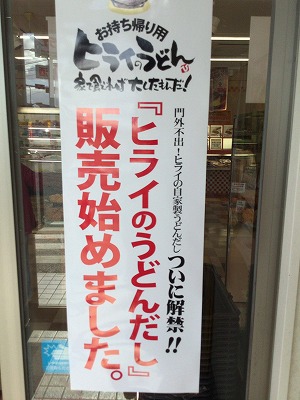 お持ち帰り用
ヒライのうどん
門外不出!ヒライの自家製うどんだし
ついに解禁!!
『ヒライのうどんだし』
販売始めました。